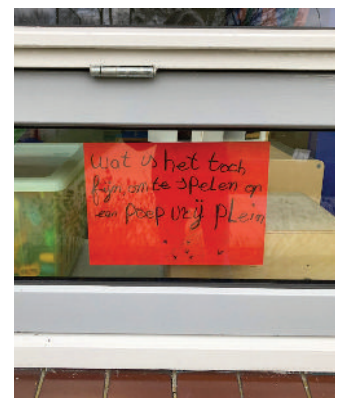 wat is het toch
fijn om te spelen op
een poep vrij plein